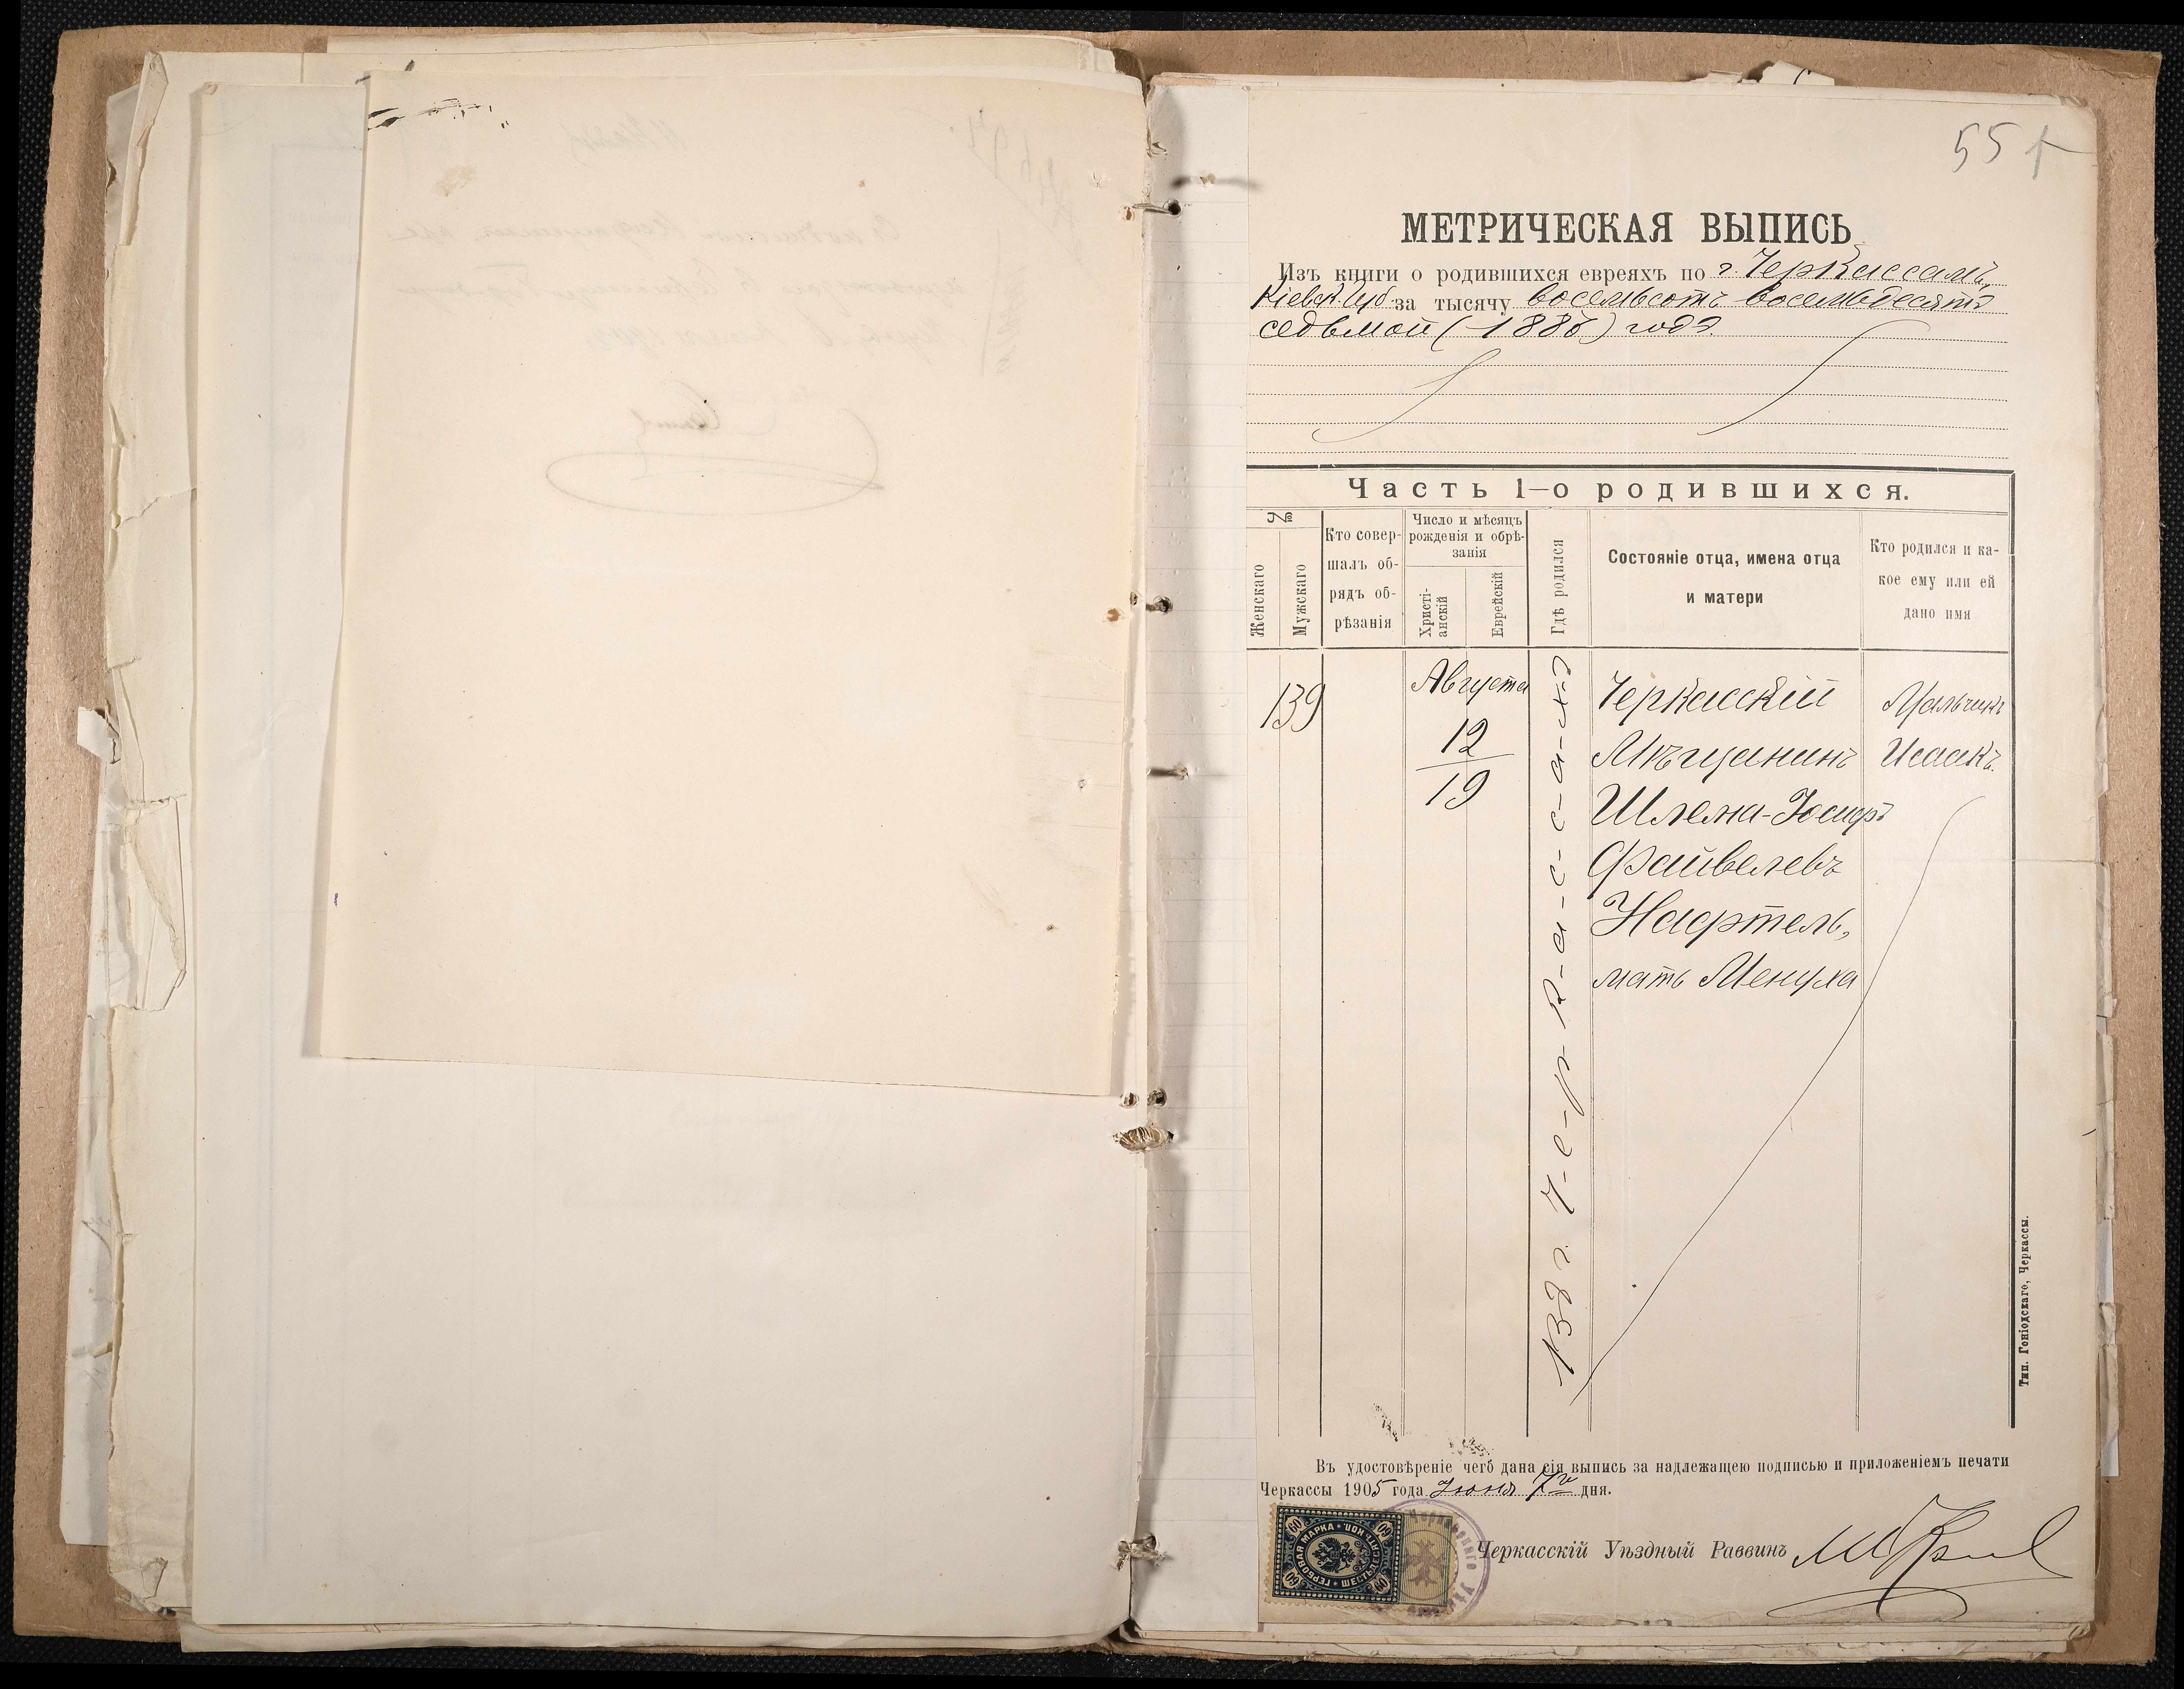 55
МЕТРИЧЕСКАЯ ВЫПИСЬ
Изъ книги о родившихся евреяхъ по г. Черкассамъ,
Кіевск. Губ. за тысячу восемьсотъ восемьдесятъ
седьмой (1887) годъ.
Часть 1—о родившихся.
№
Женскаго
Мужскаго
Кто совер-
шалъ об-
рядъ об-
рѣзанія
Число и мѣсяцъ
рожденія и обрѣ-
занія
Христі-
анскій
Еврейскій
Гдѣ родился
Состояніе отца, имена отца
и матери
Кто родился и ка-
кое ему или ей
дано имя
139
Августа
12
19
Въ г. Ч-е-р-к-а-с-с-а-х-ъ
Черкасскій
Мѣщанинъ
Шлема-Іосифъ
Файвелевъ
Нафтель,
мать Менуха
Мальчикъ
Исаакъ.
Въ удостовѣреніе чего дана сія выпись за надлежащею подписью и приложеніемъ печати
Черкассы 1905 года Іюня 7го дня.
Черкасскій Уѣздный Раввинъ
ГЕРБОВАЯ МАРКА
60
60
60
60
Тип. Гоніодскаго, Черкассы.